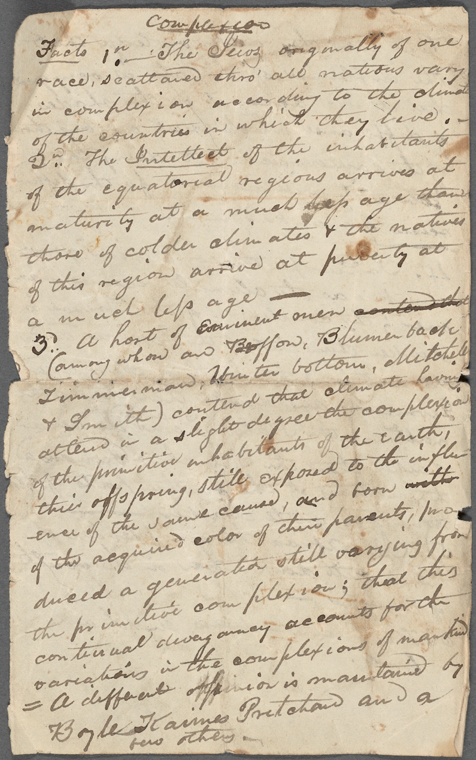 Complexion
Facts 1.st — The Jews originally of one
race, scattered thro' all nations vary
in complexion according to the climate
of the countries in which they live. —
2.nd The Intellect of the inhabitants
of the equatorial regions arrives at
maturity at a much less age than
those of colder climates & the natives
of this region arrive at puberty at
a much less age —
3.d A host of eminent men contend that
(among whom are Buffon, Blumenback
Zimmerman, Winter bottom, Mitchell
& Smith) contend that climate having
altered in a slight degree the complexion
of the primitive inhabitants of the earth,
their offspring, still exposed to the influ-
ence of the same cause, and born with
of the acquired color of their parents, pro-
duced a generation still varying from
the primitive complexion; that this
continual divagancy accounts for the
variations in the complexions of mankind
= A different oppinion is maintained by
Boyle Kaimes Pritchard and a
few others. —